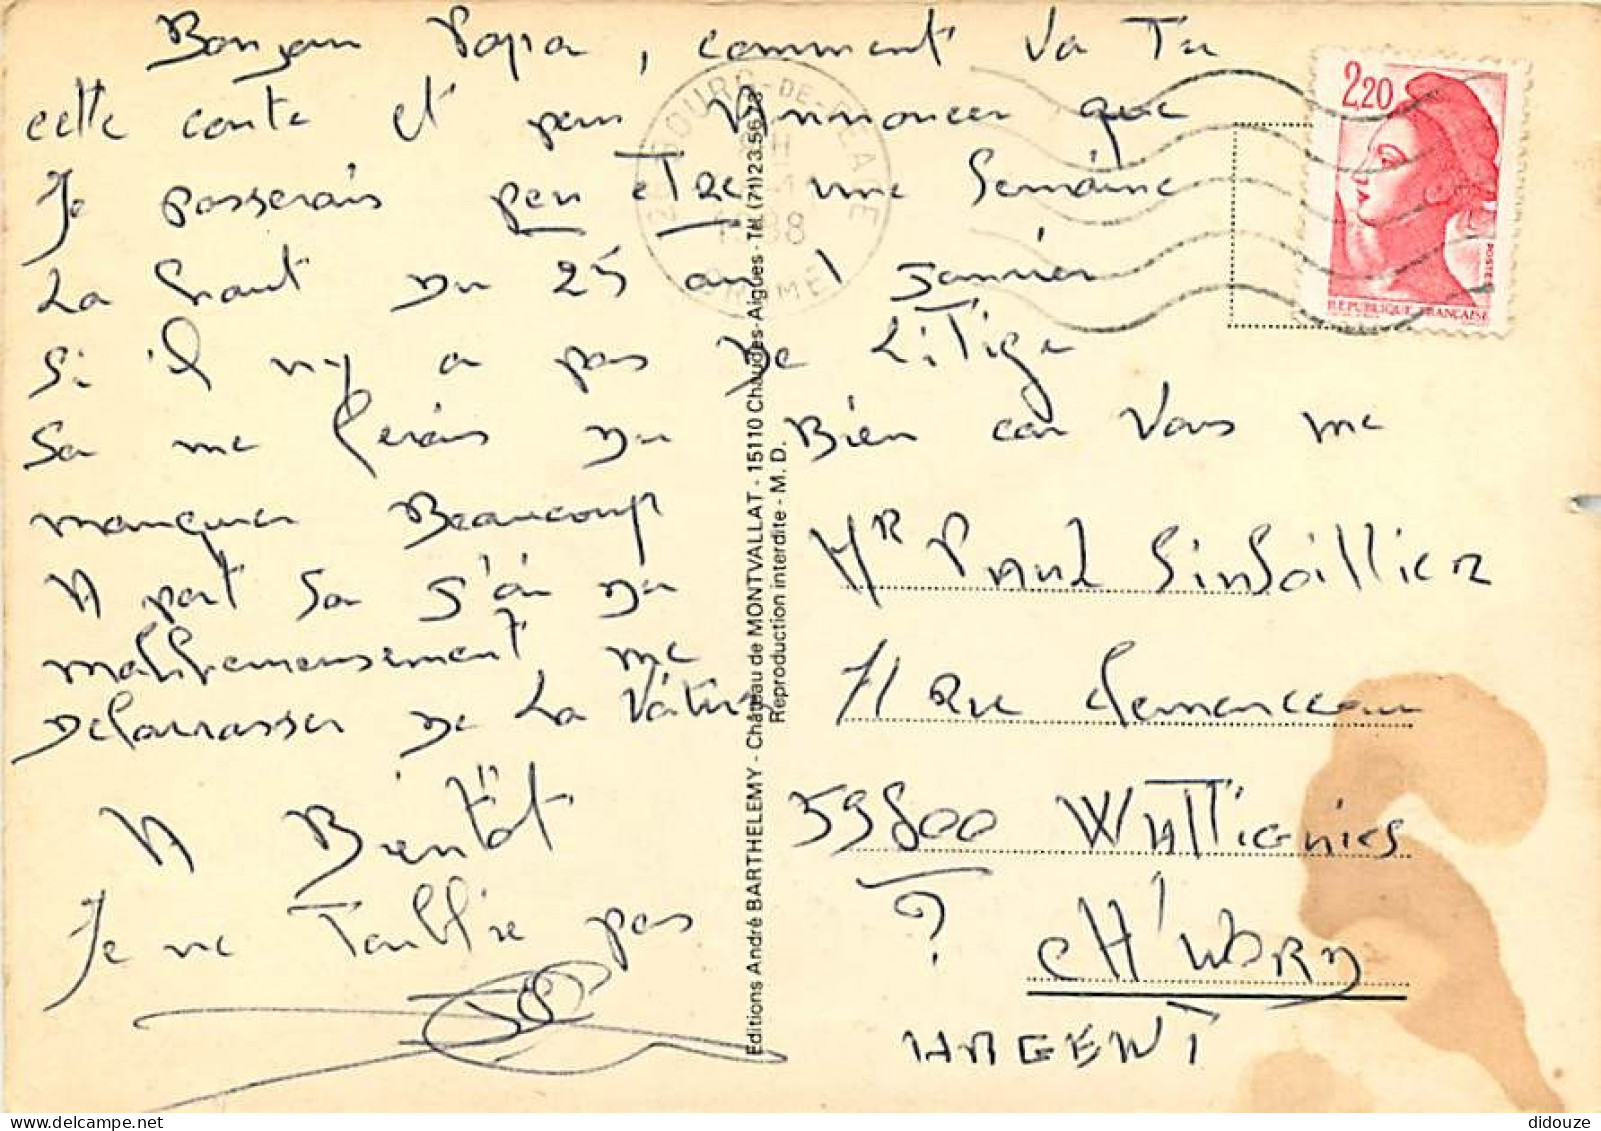 Bonjour Papa, comment va Tu
cette carte et pour Annoncer que
Je passerais peu etre une Semaine
La haut du 25 au 1 Janvier
Si il n'y a pas de LiTige
Sa me ferais du Bien car Vous me
manquer Beaucoup
A part Sa J'ai du
malheureusement me
Debarrasser de La Voiture
A Bientôt
Je ne T'oublie pas
2,20
POSTE
REPUBLIQUE FRANÇAISE
BOURG-DE-PEAGE
DROME
Editions André BARTHELEMY - Château de MONTVALLAT - 15110 Chaudes-Aigues - Tél. (71) 23.56.73
Reproduction interdite - M. D.
Mr Paul Sinsoillier
71 Rue Clemenceau
59800 WATTignies
?
CH'NORD
ARGENT
delcampe.net
didouze